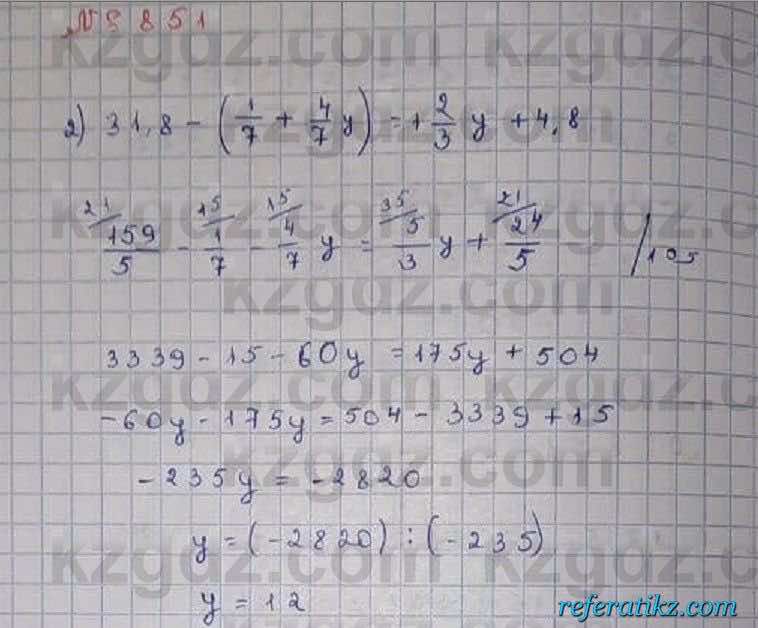 № 851
2) 31,8 - (1/7 + 4/7 y) = 1 2/3 y + 4,8
21/ 159/5 - 15/ 1/7 - 15/ 4/7 y = 35/ 5/3 y + 21/ 24/5 /105
3339 - 15 - 60y = 175y + 504
-60y - 175y = 504 - 3339 + 15
-235y = -2820
y = (-2820) : (-235)
y = 12
kzgdz.com
referatikz.com